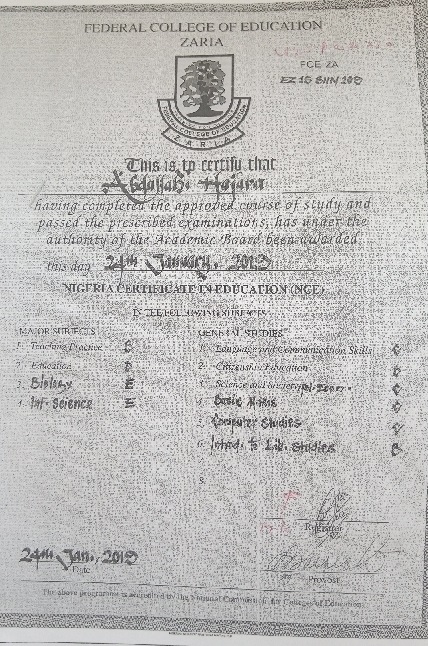 FEDERAL COLLEGE OF EDUCATION
ZARIA
FCE ZA
FEDERAL COLLEGE OF EDUCATION
ZARIA
This is to certify that
Abdullahi Hajara
having completed the approved course of study and
passed the prescribed examinations, has under the
authority of the Academic Board been awarded
this day 24th January, 2013
NIGERIA CERTIFICATE IN EDUCATION (NCE)
IN THE FOLLOWING SUBJECTS
MAJOR SUBJECTS
1. Teaching Practice C
2. Education D
3. Biology E
4. Int. Science E
GENERAL STUDIES
1. Language and Communication Skills C
2. Citizenship Education
3. Science and Society
4. Basic Maths
Computer Studies
6. Introd. to Lib. Studies B
8.
Registrar
24th Jan., 2013
Date
Provost
The above programme is accredited by the National Commission for Colleges of Education